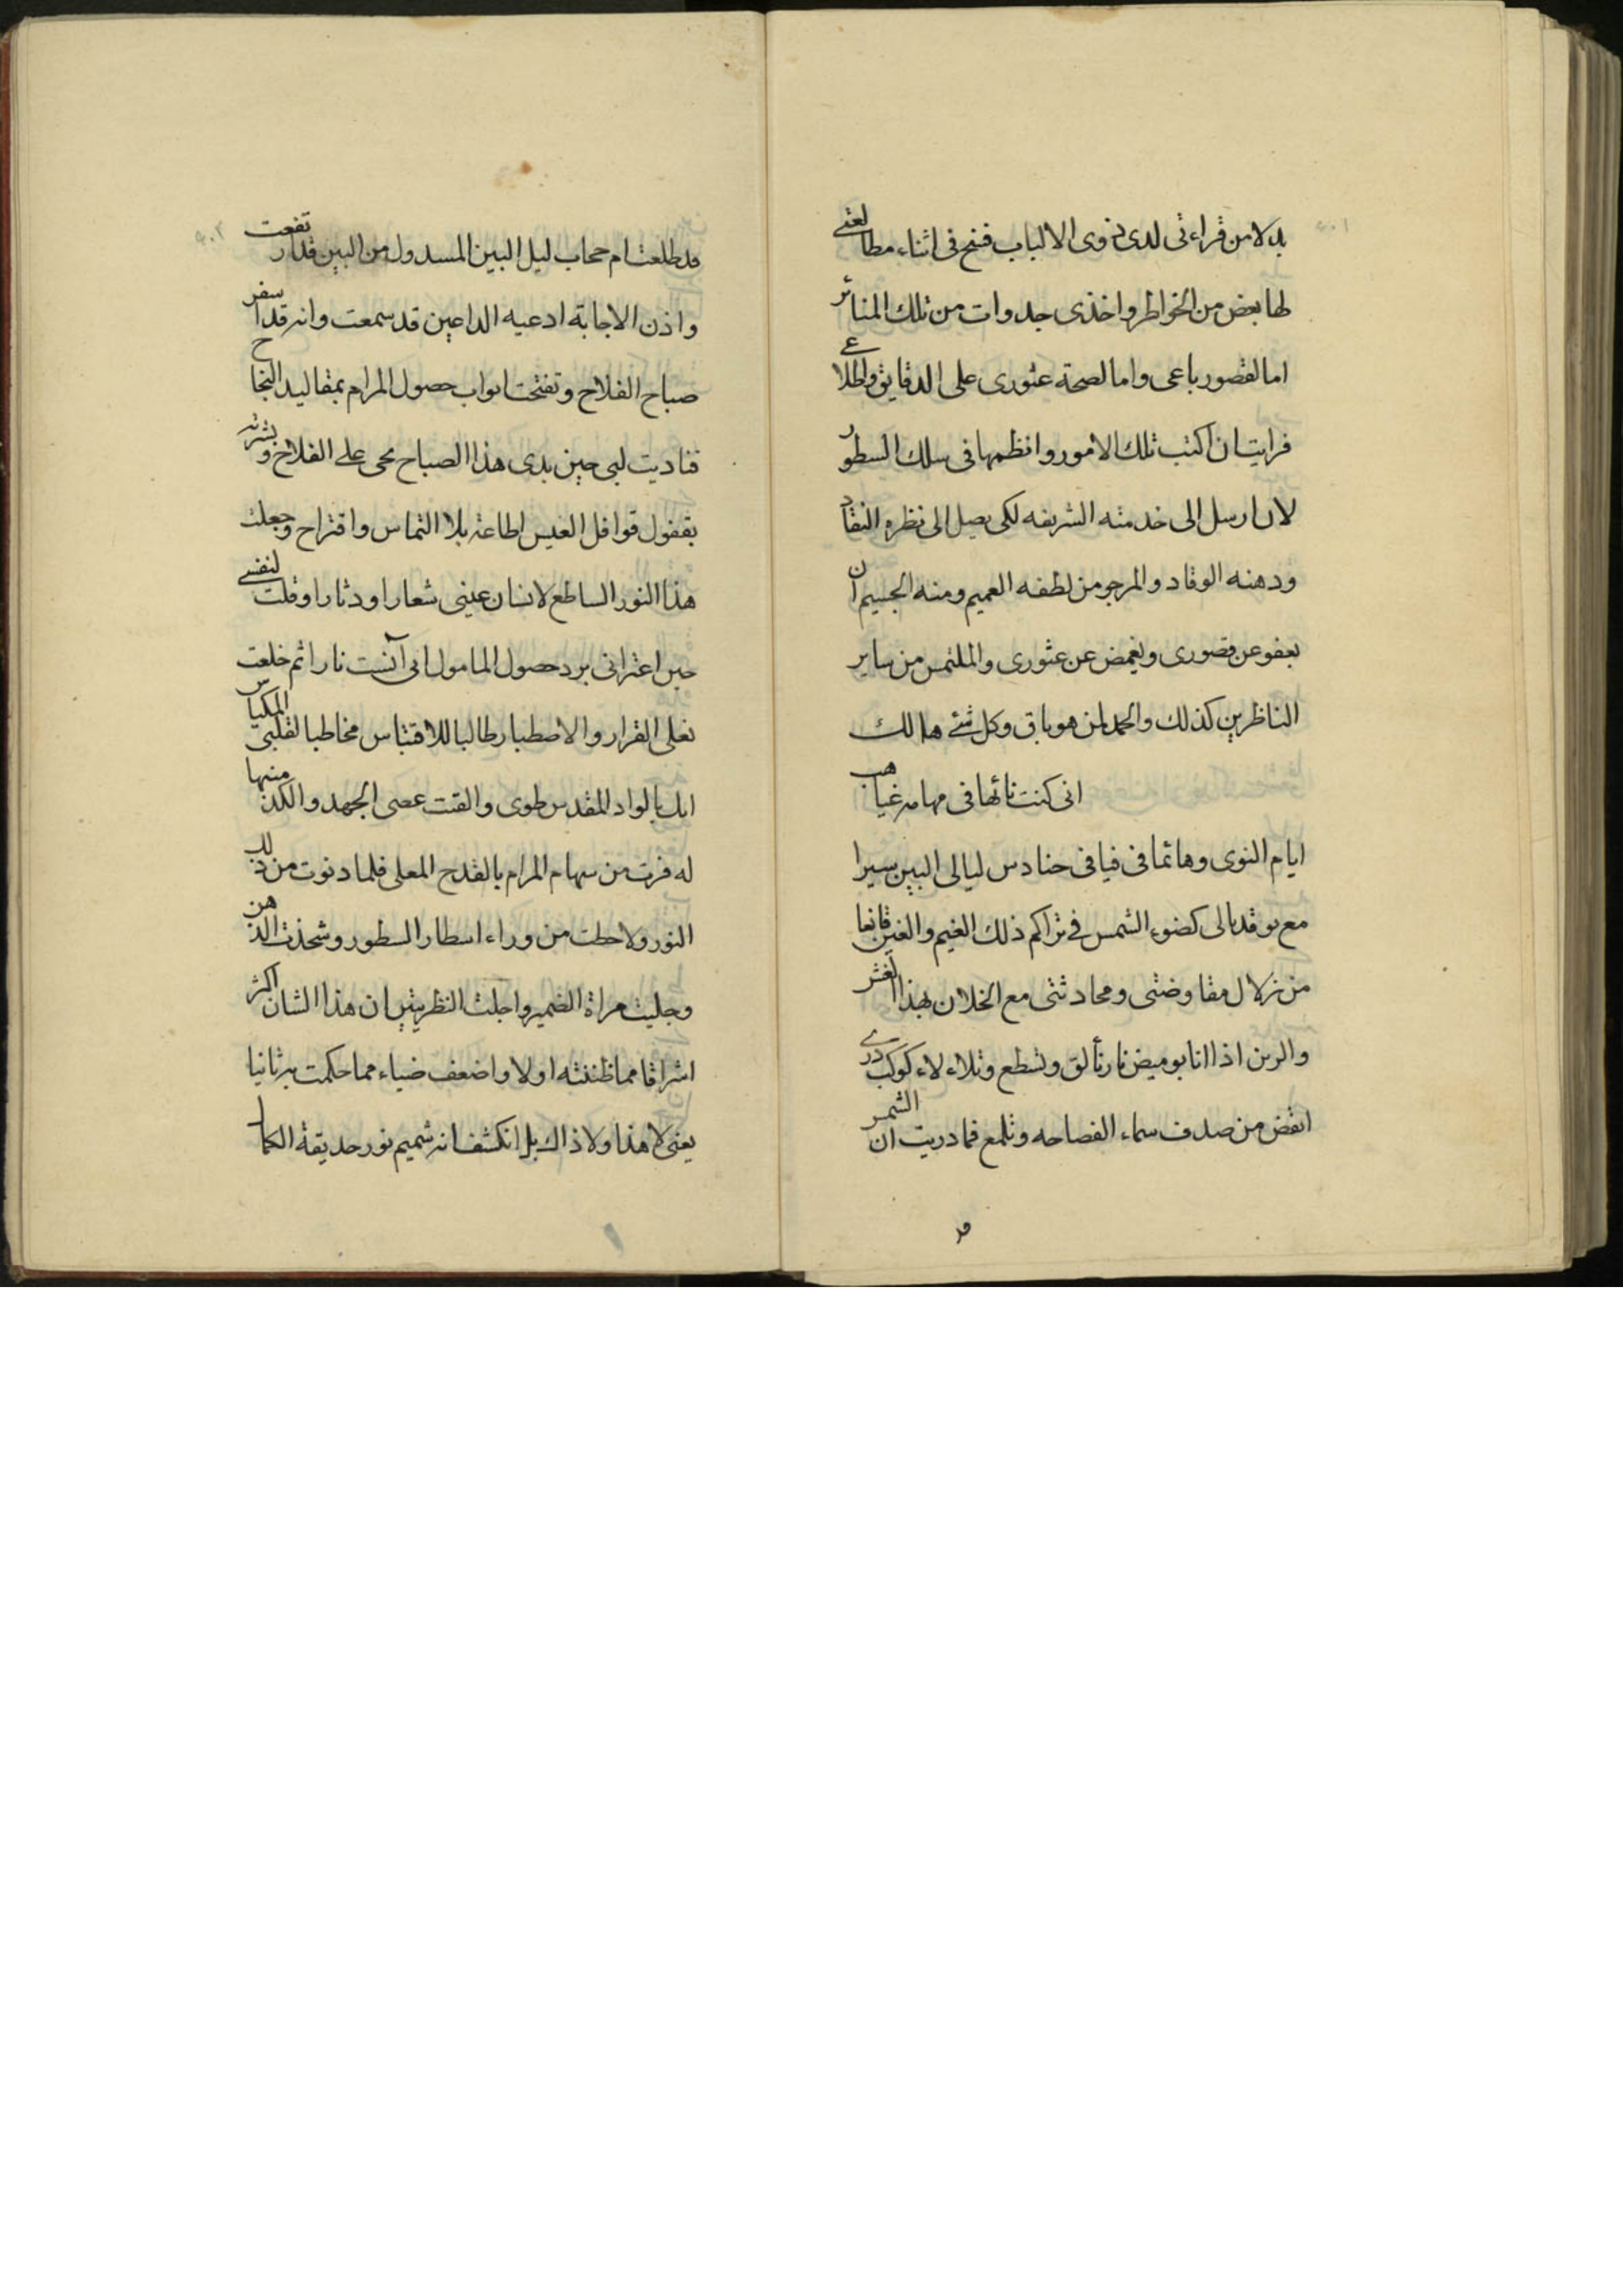 بدلا من قراءتی لدی ذوی الالباب فسنح فی اثناء مطالعتی
لها بعض من الخواطر واخذی جدوات من تلك المناثر
اما لقصور باعی واما لصحة عثوری علی الدقایق واطلاع
فرایت ان اکتب تلك الامور وانظمها فی سلك السطور
لان ارسل الی خدمته الشریفه لکی یصل الی نظره النقاد
وذهنه الوقاد والمرجو من لطفه العمیم ومنه الجسیم ان
یعفو عن قصوری ویغمض عن عثوری والملتمس من سایر
الناظرین کذلك والحمد لمن هو باق وکل شئ هالك
انی کنت تائها فی مهامه غیاهب
ایام النوی وهائما فی فیافی حنادس لیالی البین سیرا
مع توقد بالی کضوء الشمس فی تراکم ذلك الغیم والغین قانعا
من زلال مفاوضتی ومحادثتی مع الخلان بهذا
والرین اذا انا بومیض نار تألق وتسطع وتلاءلاء کوکب دری
انقض من صدف سماء الفصاحه وتلمع فما دریت ان الشمس
قد طلعت ام حجاب لیل البین المسدول من البین قد ارتفعت
واذن الاجابة ادعیه الداعین قد سمعت وانه قد اسفر
صباح الفلاح وتفتحت ابواب حصول المرام بمقالید النجاح
فنادیت لبی حین بدی هذا الصباح بحی علی الفلاح وبشرته
بقفول قوافل العیس اطاعة بلا التماس واقتراح وجعلت
هذا النور الساطع لانسان عینی شعارا ودثارا وقلت لنفسی
حین اعترانی برد حصول المامول انی آنست نارا ثم خلعت
نعلی القرار والاصطبار طالبا للاقتباس مخاطبا لقلبی
انك بالواد المقدس طوی والقت عصی الجهد والکد منها
له فزت من سهام المرام بالقدح المعلی فلما دنوت من ذلك
النور ولاحظت من وراء استار السطور وشحذت الذهن
وجلیت مراة الضمیر واجلت النظر تبین ان هذا الشان اکثر
اشراقا مما ظننته اولا واضعف ضیاء مما حکمت به ثانیا
یعنی لا هذا ولا ذاك بل انکشف انه شمیم نور حدیقة الکمال